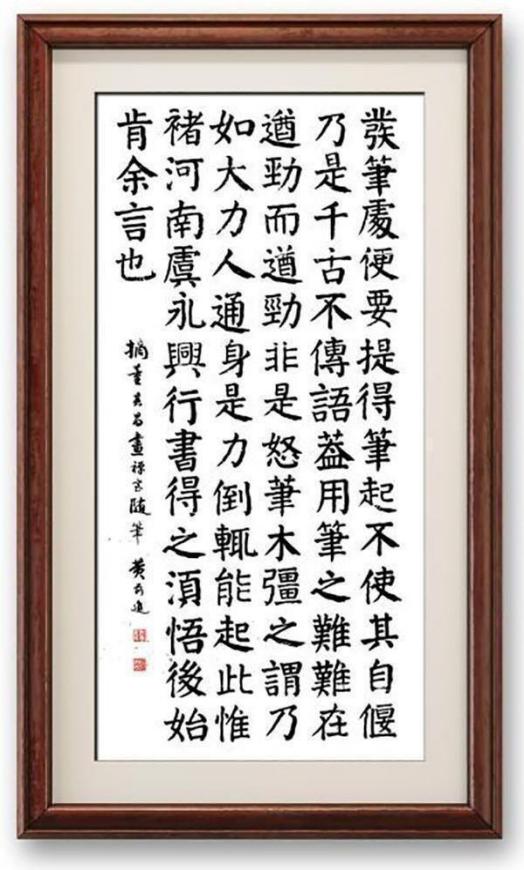 發筆處便要提得筆起不使其自偃
乃是千古不傳語葢用筆之難難在
遒勁而遒勁非是怒筆木彊之謂乃
如大力人通身是力倒輒能起此惟
褚河南虞永興行書得之須悟後始
肯余言也
摘董其昌畫禪室隨筆 黄前進